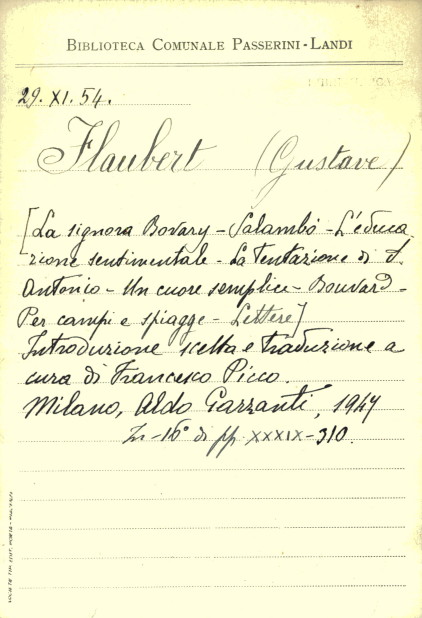 BIBLIOTECA COMUNALE PASSERINI-LANDI
29. XI. 54.
Flaubert (Gustave)
[La signora Bovary - Salambó - L'educa
zione sentimentale - La Tentazione di S.
Antonio - Un cuore semplice - Bouvard -
Per campi e spiagge - Lettere]
Introduzione scelta e traduzione a
cura di Francesco Picco.
Milano, Aldo Garzanti, 1947
In-16° di pp XXXIX-310.